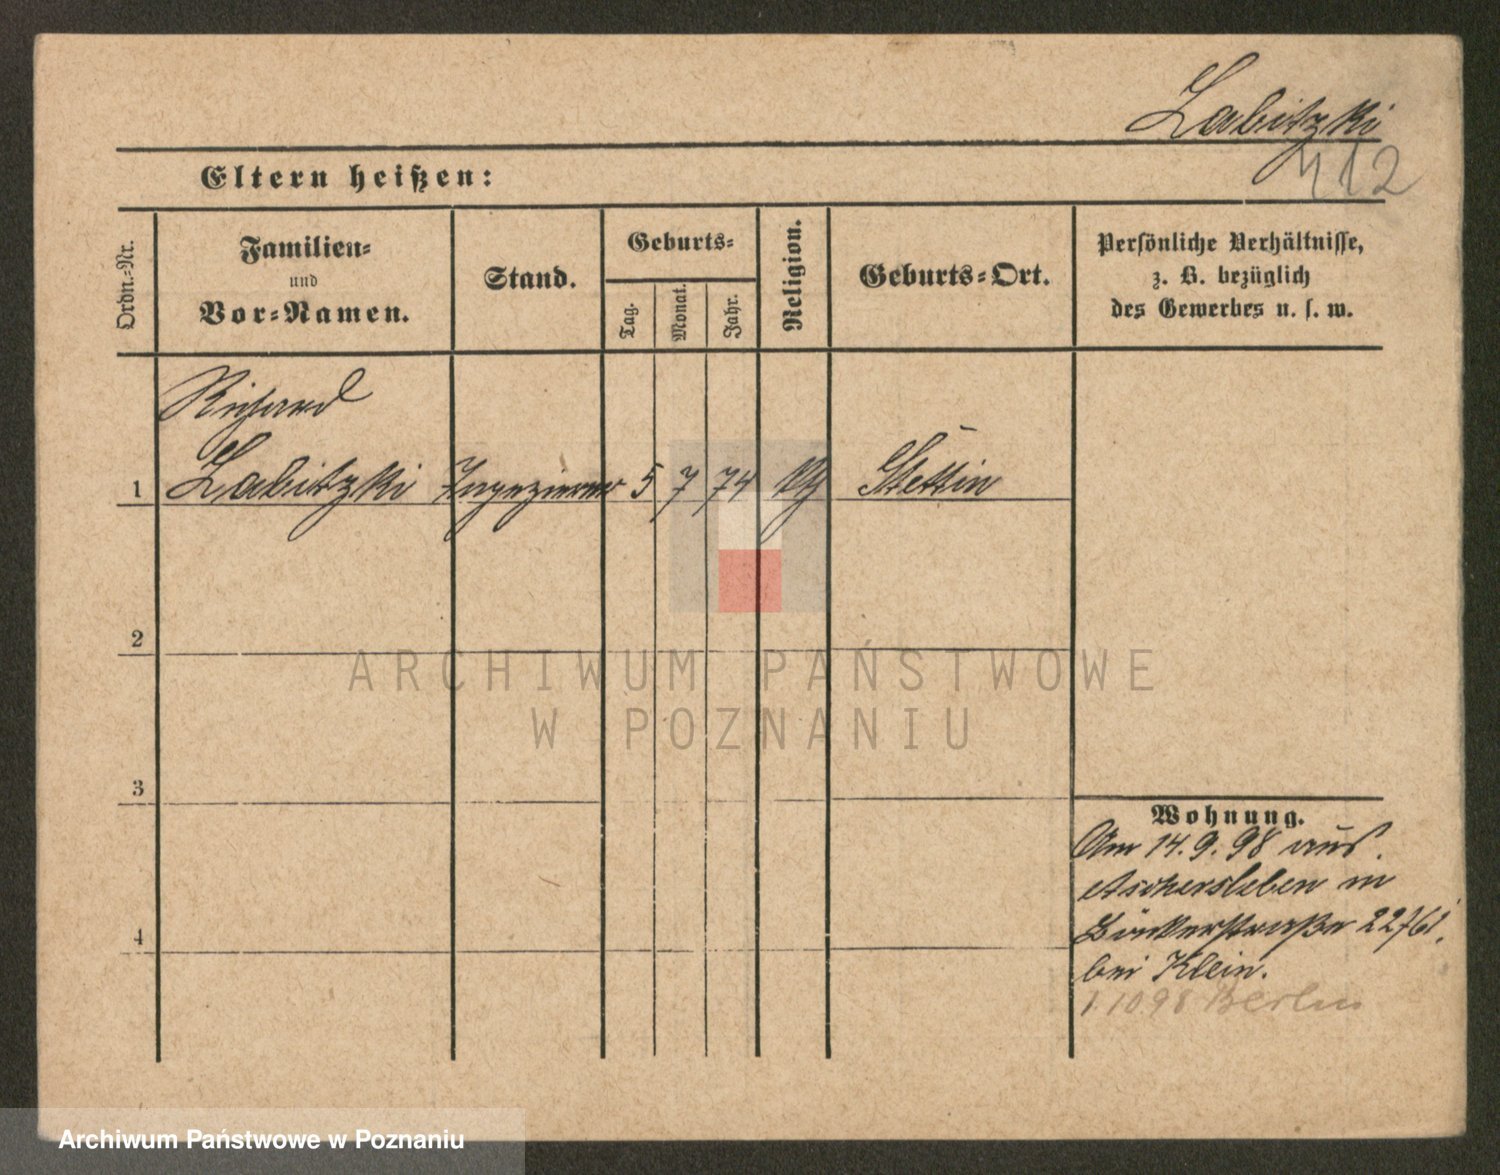 Labitzki
412
Eltern heißen:
Ordn.-Nr.
Familien-
und
Vor-Namen.
Stand.
Geburts-
Tag.
Monat.
Jahr.
Religion.
Geburts-Ort.
Persönliche Verhältnisse,
z. B. bezüglich
des Gewerbes u. s. w.
Richard
1 Labitzki 5 7 74 Stettin
2
3
4
ARCHIWUM PAŃSTWOWE
W POZNANIU
Wohnung.
Am 14.9.98 aus
Aschersleben in
Bäckerstraße
bei Klein.
1.10 98 Berlin
Archiwum Państwowe w Poznaniu